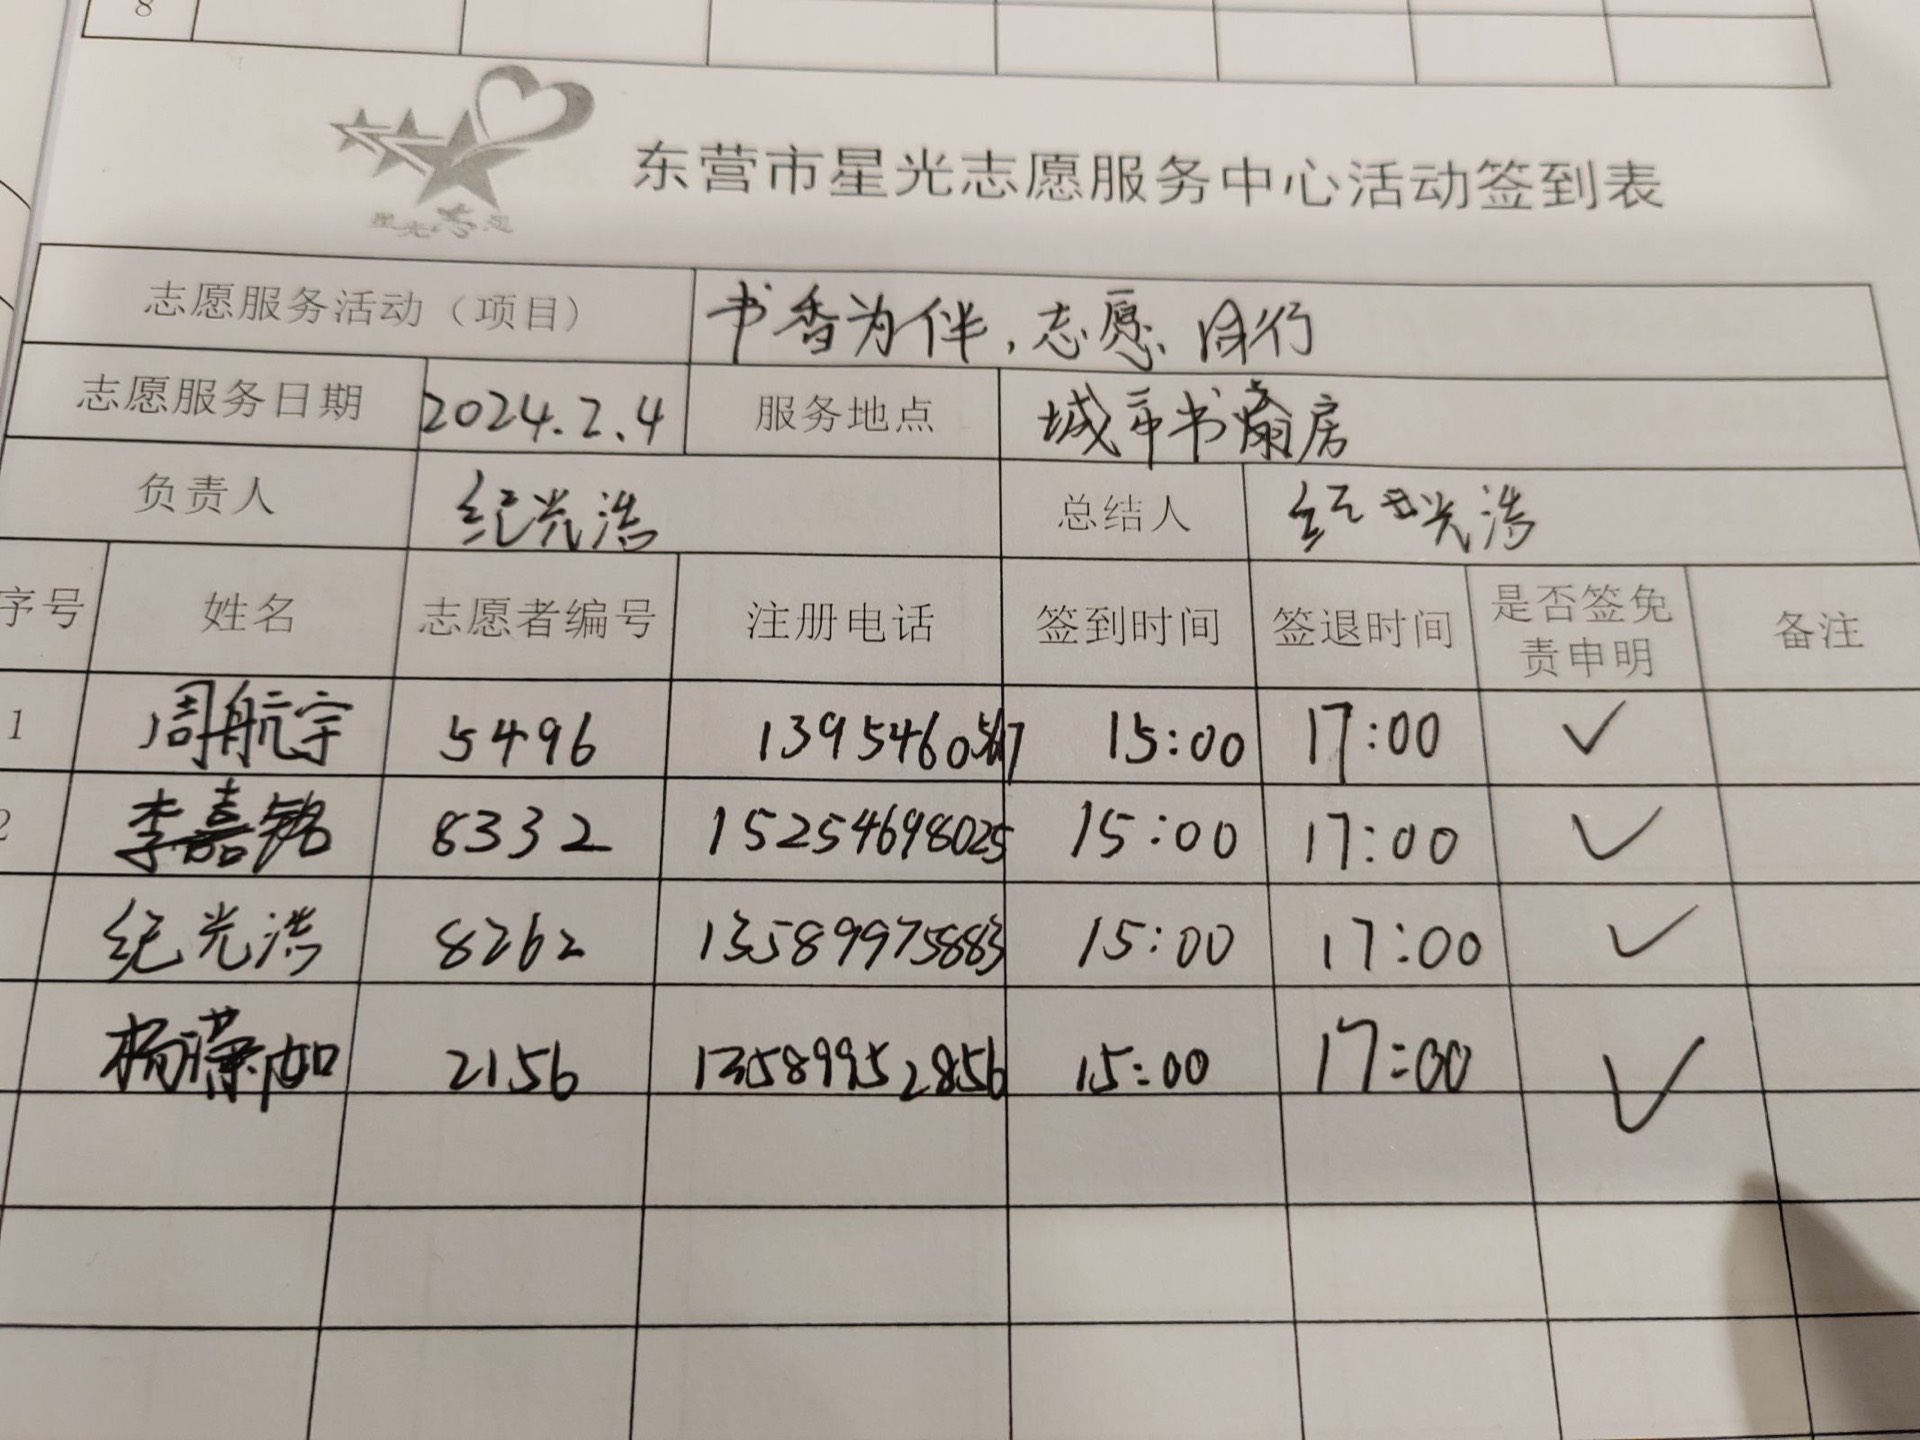 8
星光志愿
东营市星光志愿服务中心活动签到表
志愿服务活动（项目） 书香为伴，志愿同行
志愿服务日期 2024.2.4 服务地点 城市书房
负责人 纪光浩 总结人 纪光浩
序号 姓名 志愿者编号 注册电话 签到时间 签退时间 是否签免责申明 备注
1 周航宇 5496 1395460567 15:00 17:00 ✓
2 李嘉铭 8332 15254698025 15:00 17:00 ✓
纪光浩 8262 13589975883 15:00 17:00 ✓
杨潇如 2156 13589952856 15:00 17:00 ✓